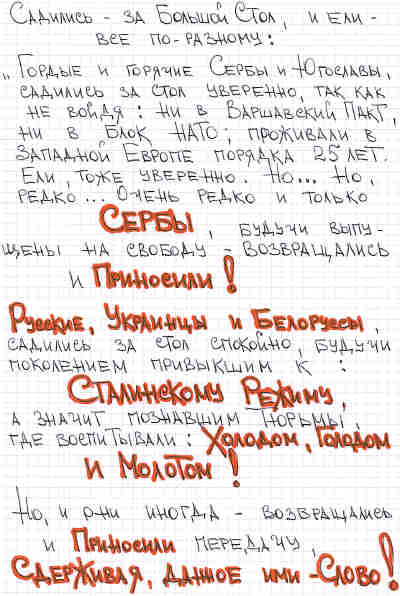 Садились - за Большой Стол, и ели -
все по-разному:
„Гордые и горячие Сербы и Югославы,
садились за стол уверенно, так как
не войдя: ни в Варшавский Пакт,
ни в Блок НАТО; проживали в
Западной Европе порядка 25 лет.
Ели, тоже уверенно. Но... Но,
редко... Очень редко и только
Сербы, будучи выпу-
щены на свободу - возвращались
и Приносили!
Русские, Украинцы и Белоруссы,
садились за стол спокойно, будучи
поколением привыкшим к:
Сталинскому Режиму,
а значит познавшим Тюрьмы,
где воспитывали: Холодом, Голодом
и Молотом!
Но, и они иногда - возвращались
и Приносили передачу,
Сдерживая, данное ими - Слово!